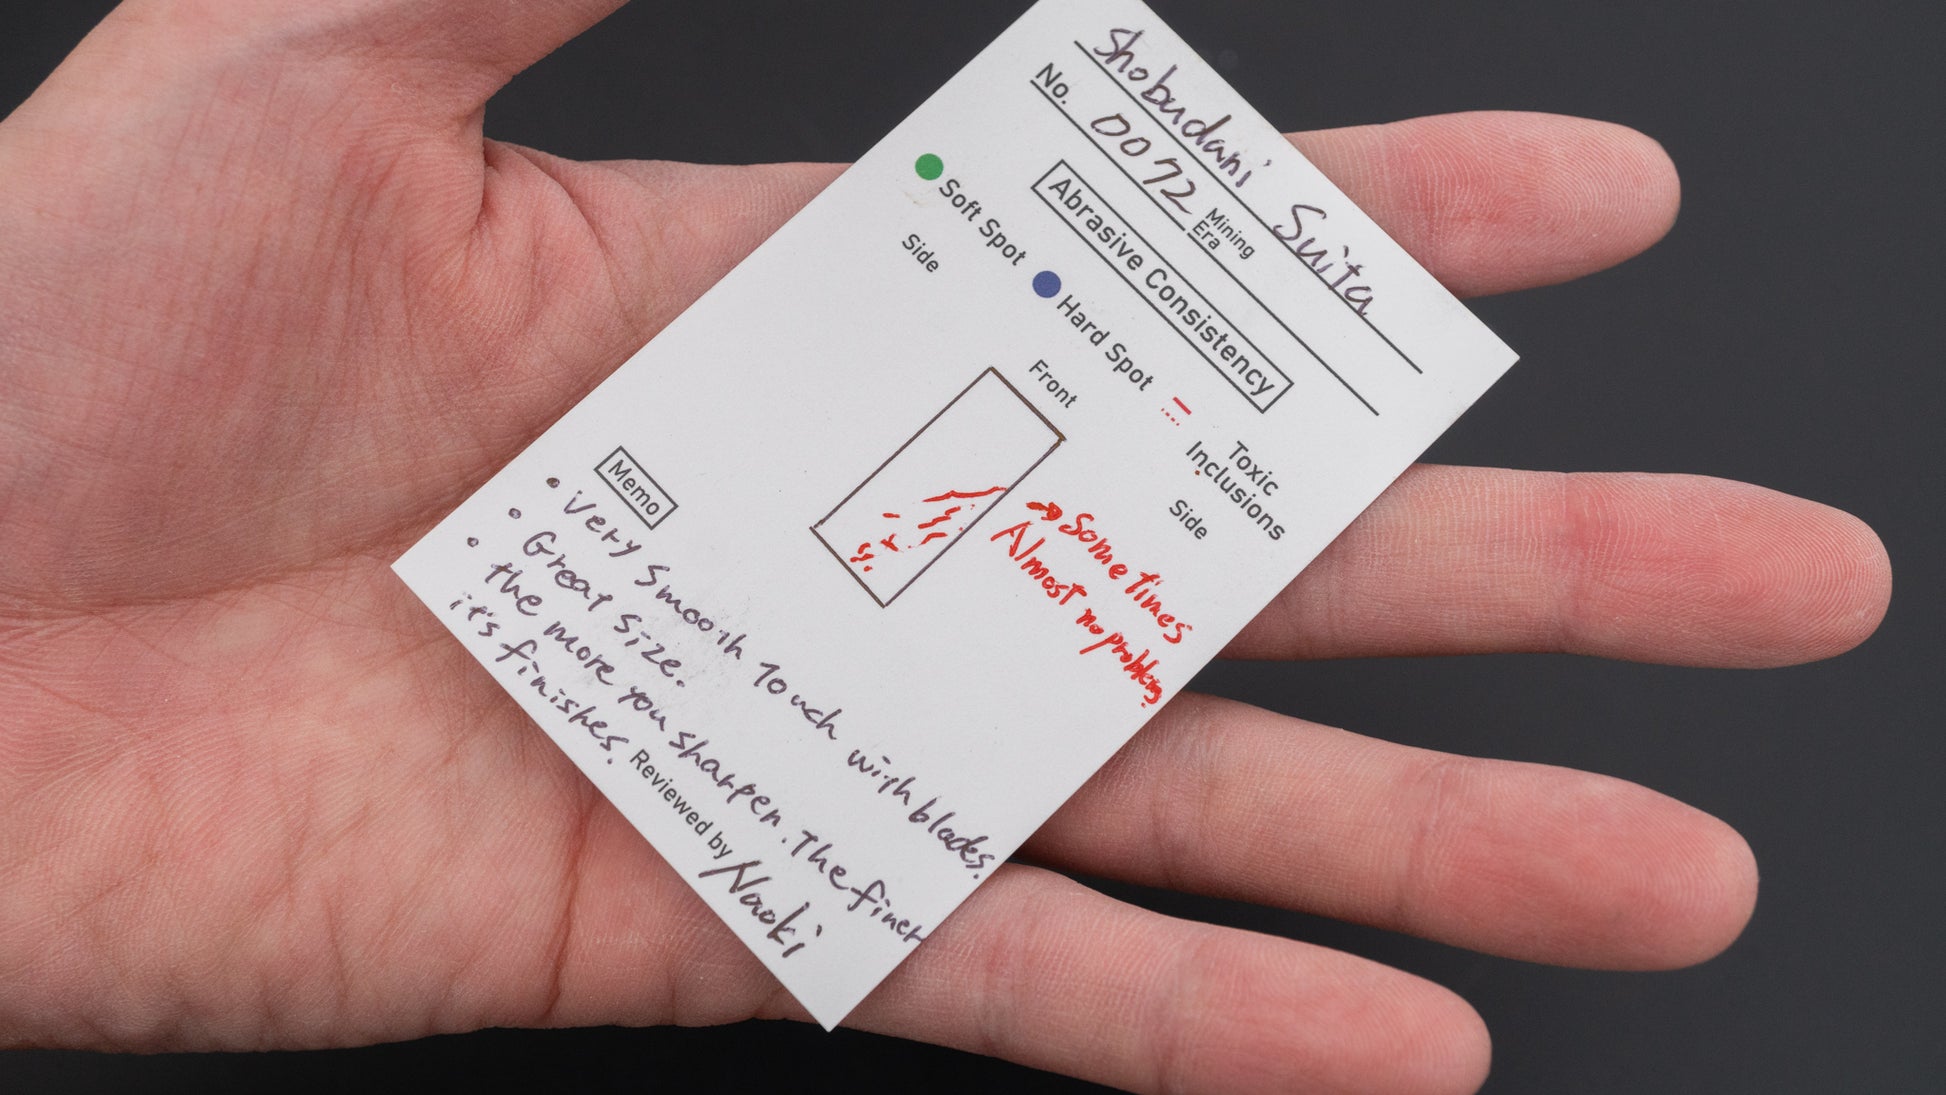 Shobudani Suita
No. 0072 Mining Era
Abrasive Consistency
Soft Spot Hard Spot Toxic Inclusions
Side Front Side
→ Sometimes
Almost no problems
Memo
• Very Smooth Touch with blades.
• Great Size.
• the more you sharpen. The finer
it's finishes.
Reviewed by Naoki